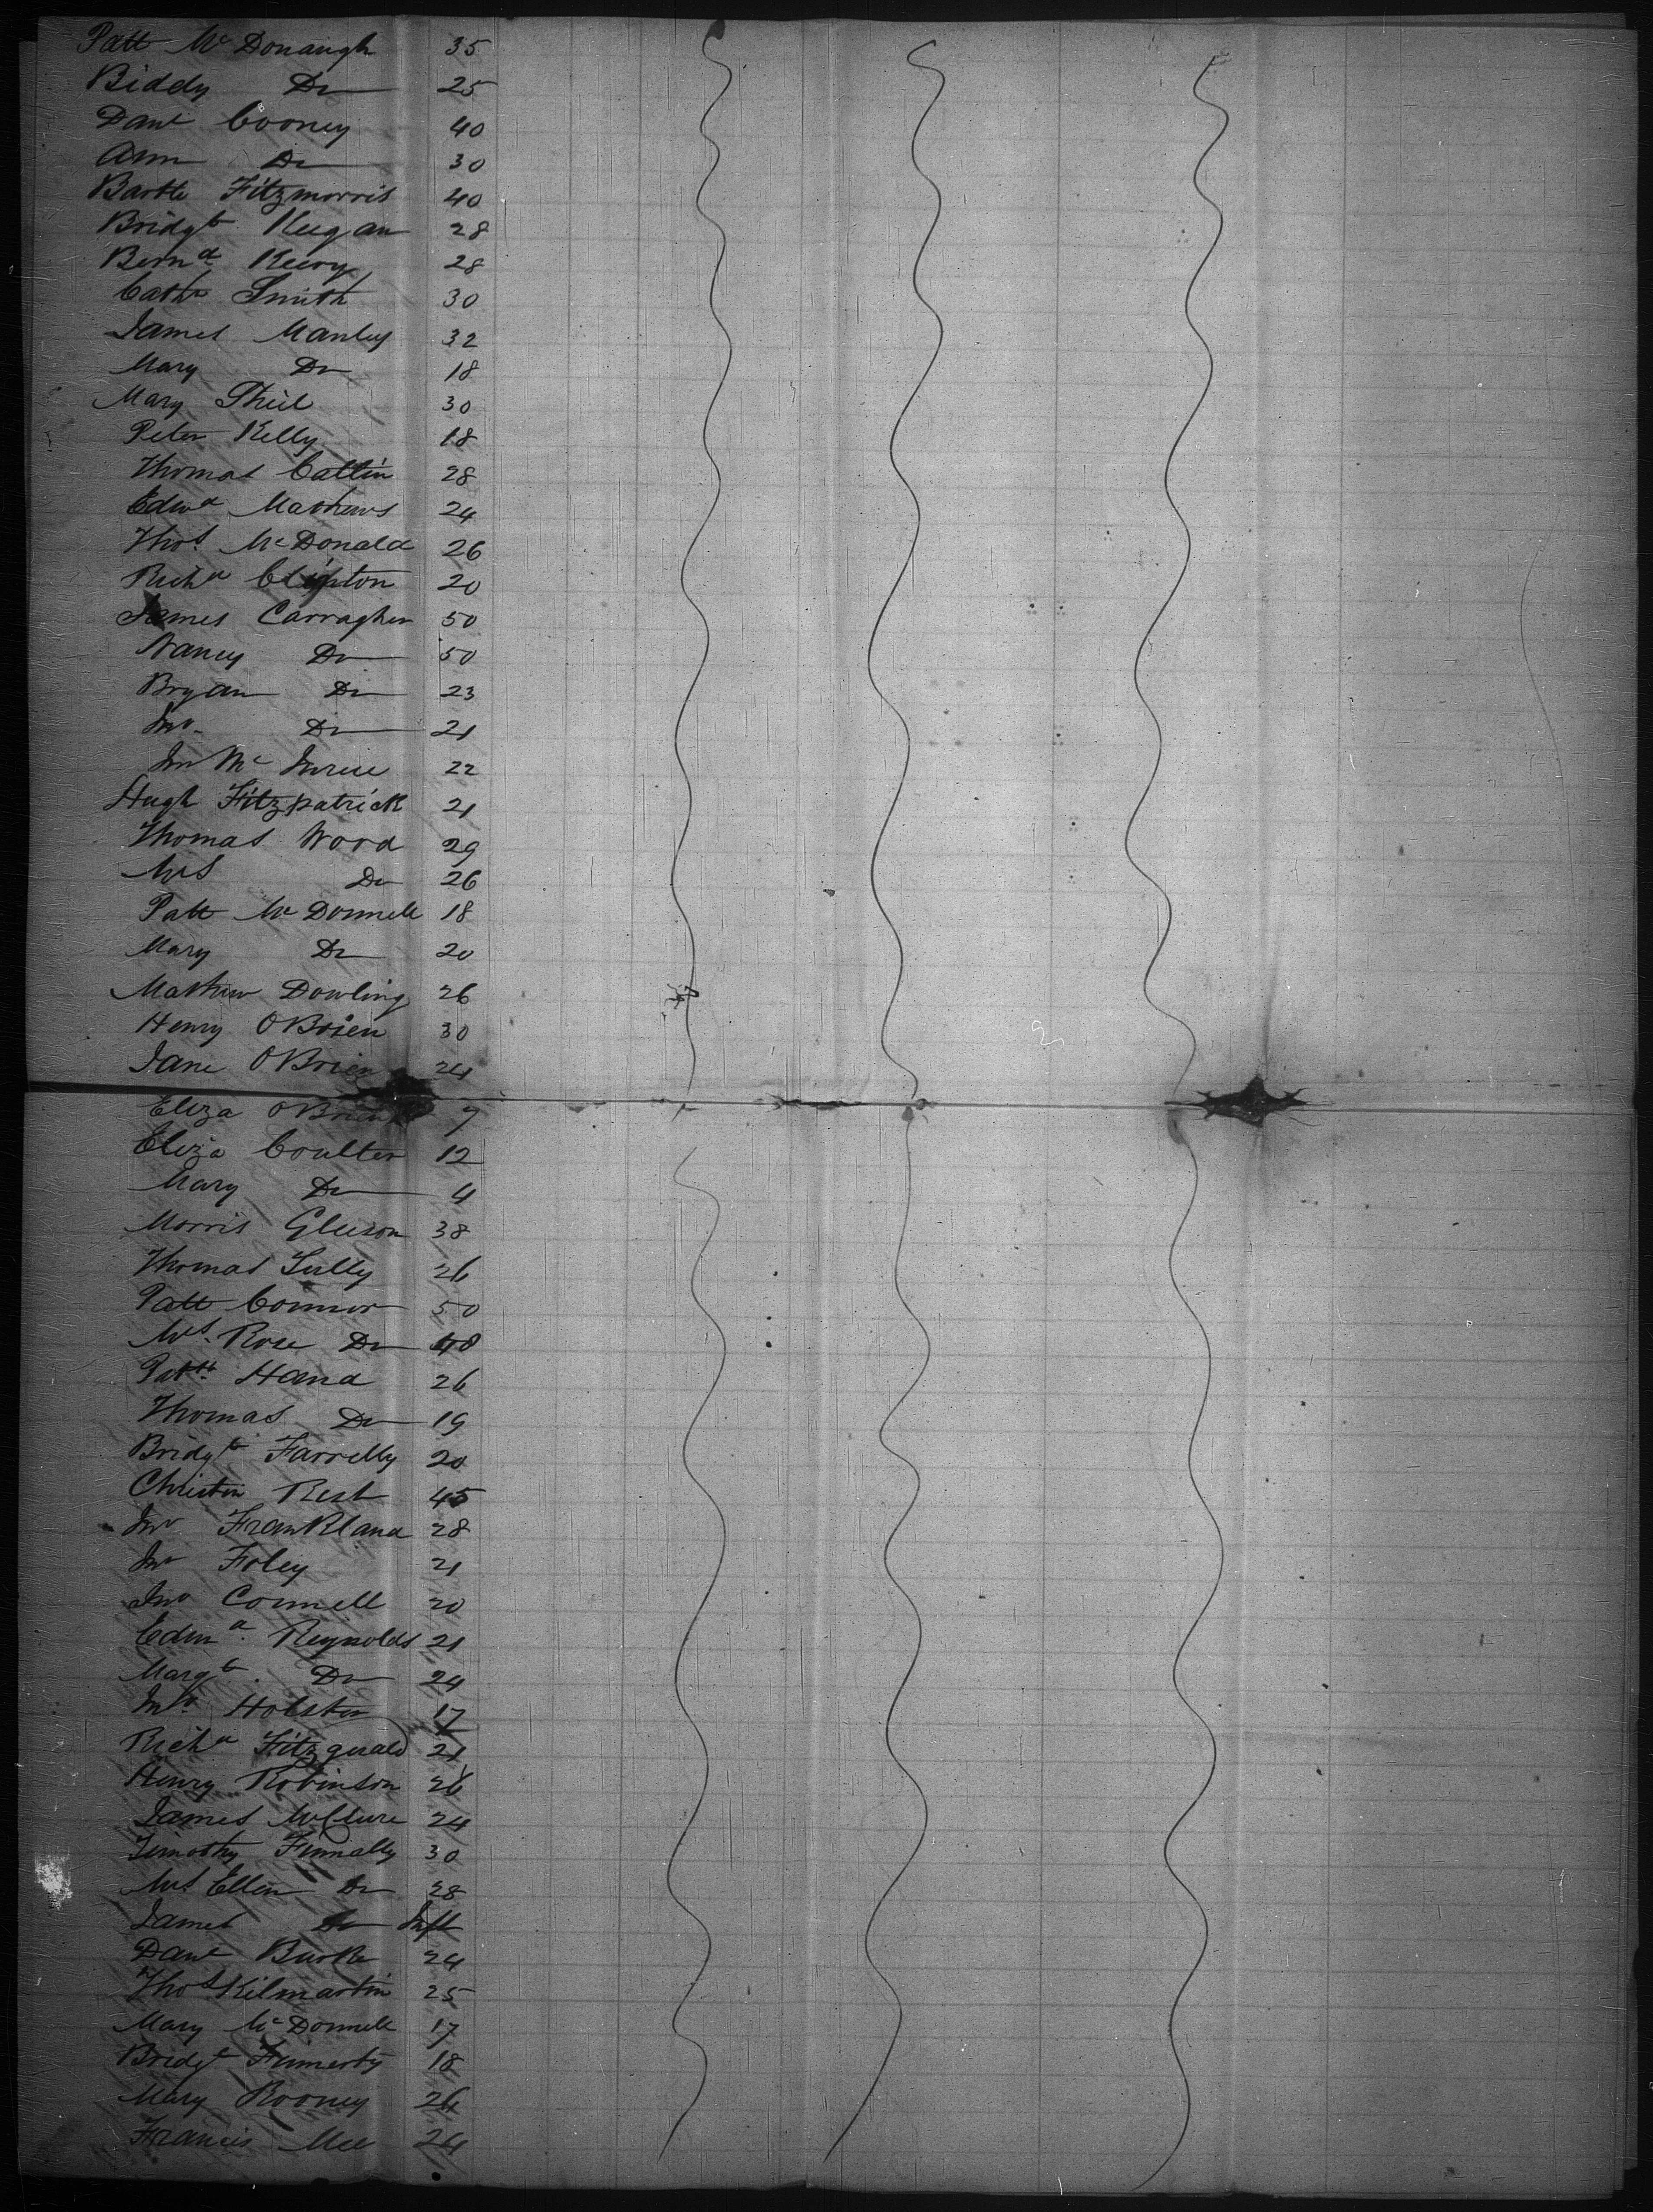 Patt McDonaugh 35
Biddy Do 25
Danl Cooney 40
Ann Do 30
Bartle Fitzmorris 40
Bridgt Keegan 28
Bernd Keery 28
Cathe Smith 30
James Manley 32
Mary Do 18
Mary Sheil 30
Peter Kelly 18
Thomas Cattin 28
Edwd Mathews 24
Thos McDonald 26
Richd Clinton 20
James Carragher 50
Nancy Do 50
Bryan Do 23
Jno. Do 21
Jno Mc 22
Hugh Fitzpatrick 21
Thomas Wood 29
Mrs Do 26
Patt McDonnell 18
Mary Do 20
Mathew Dowling 26
Henry OBrien 30
Jane OBrien 24
Eliza OBrien 7
Eliza Coulter 12
Mary Do 4
Morris Gleeson 38
Thomas Tully 26
Patt Connor 50
Mrs. Rose Do 40
Patt. Hand 26
Thomas Do 19
Bridgt Farrelly 20
Christin Rest 45
Jno Frankland 28
Jno Foley 21
Jno Connell 20
Edmd. Reynolds 21
Margt. Do 24
Jno. Holster 17
Richd Fitzgerald 21
Henry Robinson 26
James McClure 24
Timothy Finnally 30
Mrs Ellen Do 28
James Do Inft
Danl Burke 24
Thos Kilmartin 25
Mary McDonnell 17
Bridgt Finnerty 18
Mary Rooney 26
Francis Mee 24